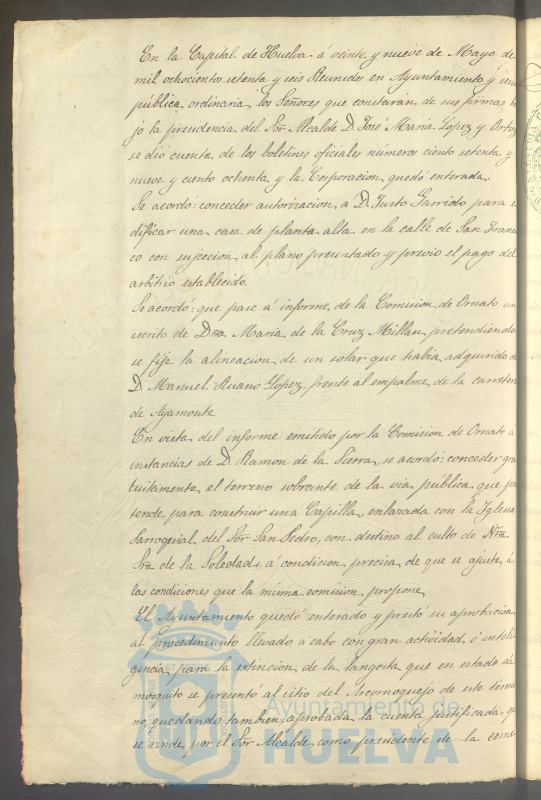 En la Capital de Huelva á veinte y nueve de Mayo de
mil ochocientos setenta y seis Reunidos en Ayuntamiento y
pública ordinaria los Señores que constarán de sus firmas
jo la presidencia del Sor Alcalde D. José Maria Lopez y
se dió cuenta de los boletines oficiales números ciento setenta y
nueve y ciento ochenta y la Corporacion quedó enterada.
Se acordó: conceder autorizacion á D. Justo Garrido para
dificar una casa de planta alta en la calle de San Fran
co con sujecion al plano presentado y previo el pago del
arbitrio establecido.
Se acordó: que pase á informe de la Comision de Ornato un
escrito de Dña. Maria de la Cruz Millan pretendiendo
se fije la alineacion de un solar que habia adquirido
D. Manuel Ruano Lopez, frente al empalme de la
de Ayamonte
En vista del informe emitido por la Comision de Ornato a
instancias de D. Ramon de la Sierra, se acordó: conceder gra
tuitamente el terreno sobrante de la via publica que
tende para construir una Capilla enlazada con la Iglesia
Parroquial del Sor San Pedro, con destino al culto de Ntra
Sra de la Soledad, á condicion precisa de que se ajuste á
las condiciones que la misma comision propone
El Ayuntamiento quedó enterado y prestó su aprobacion
al procedimiento llevado á cabo con gran actividad é inteli
gencia para la estincion de la langosta que en estado de
mosquito se presento al sitio del de este
no quedando tambien aprobada la cuenta justificada
se rinde por el Sor Alcalde como presidente de la
Ayuntamiento de
HUELVA